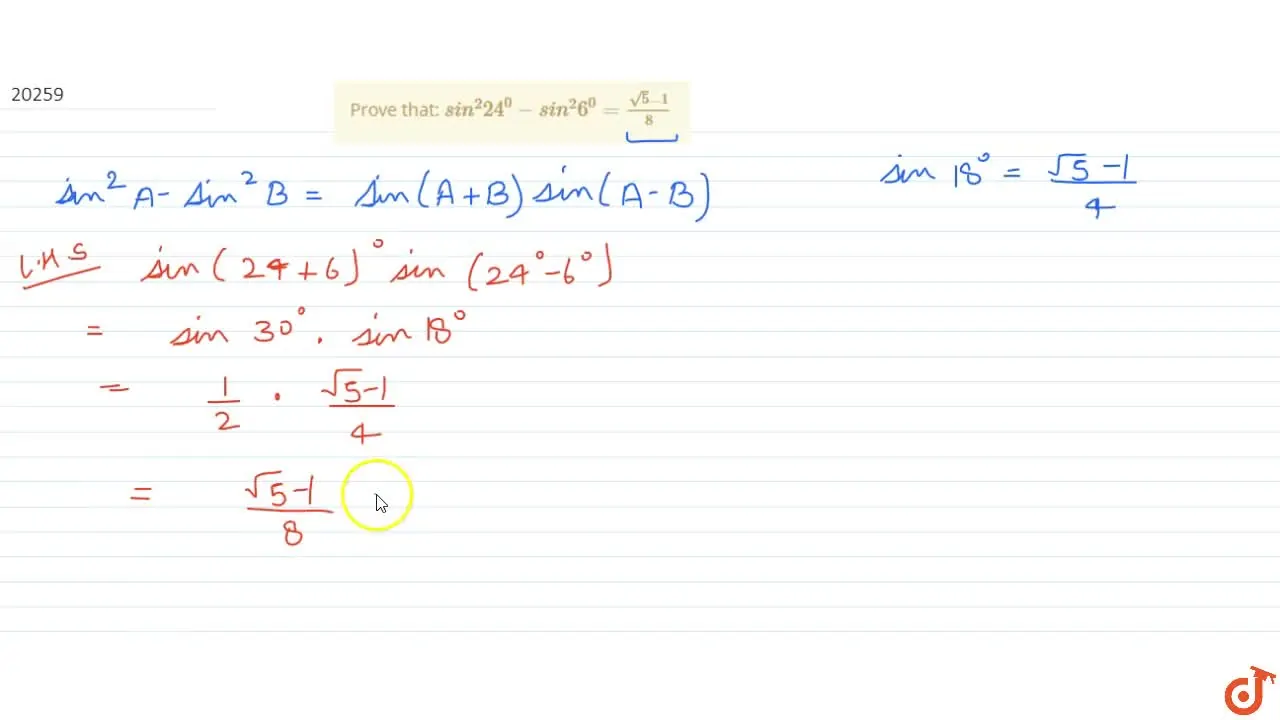 20259
Prove that: sin²24⁰ − sin²6⁰ = (√5−1)/8
sin² A - sin² B = sin(A+B) sin(A-B)
sin 18° = (√5 -1)/4
L.H.S sin(24+6)° sin(24°-6°)
= sin 30° . sin 18°
= 1/2 · (√5-1)/4
= (√5-1)/8